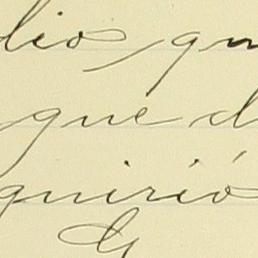 dio, qu
que d
quirió
G